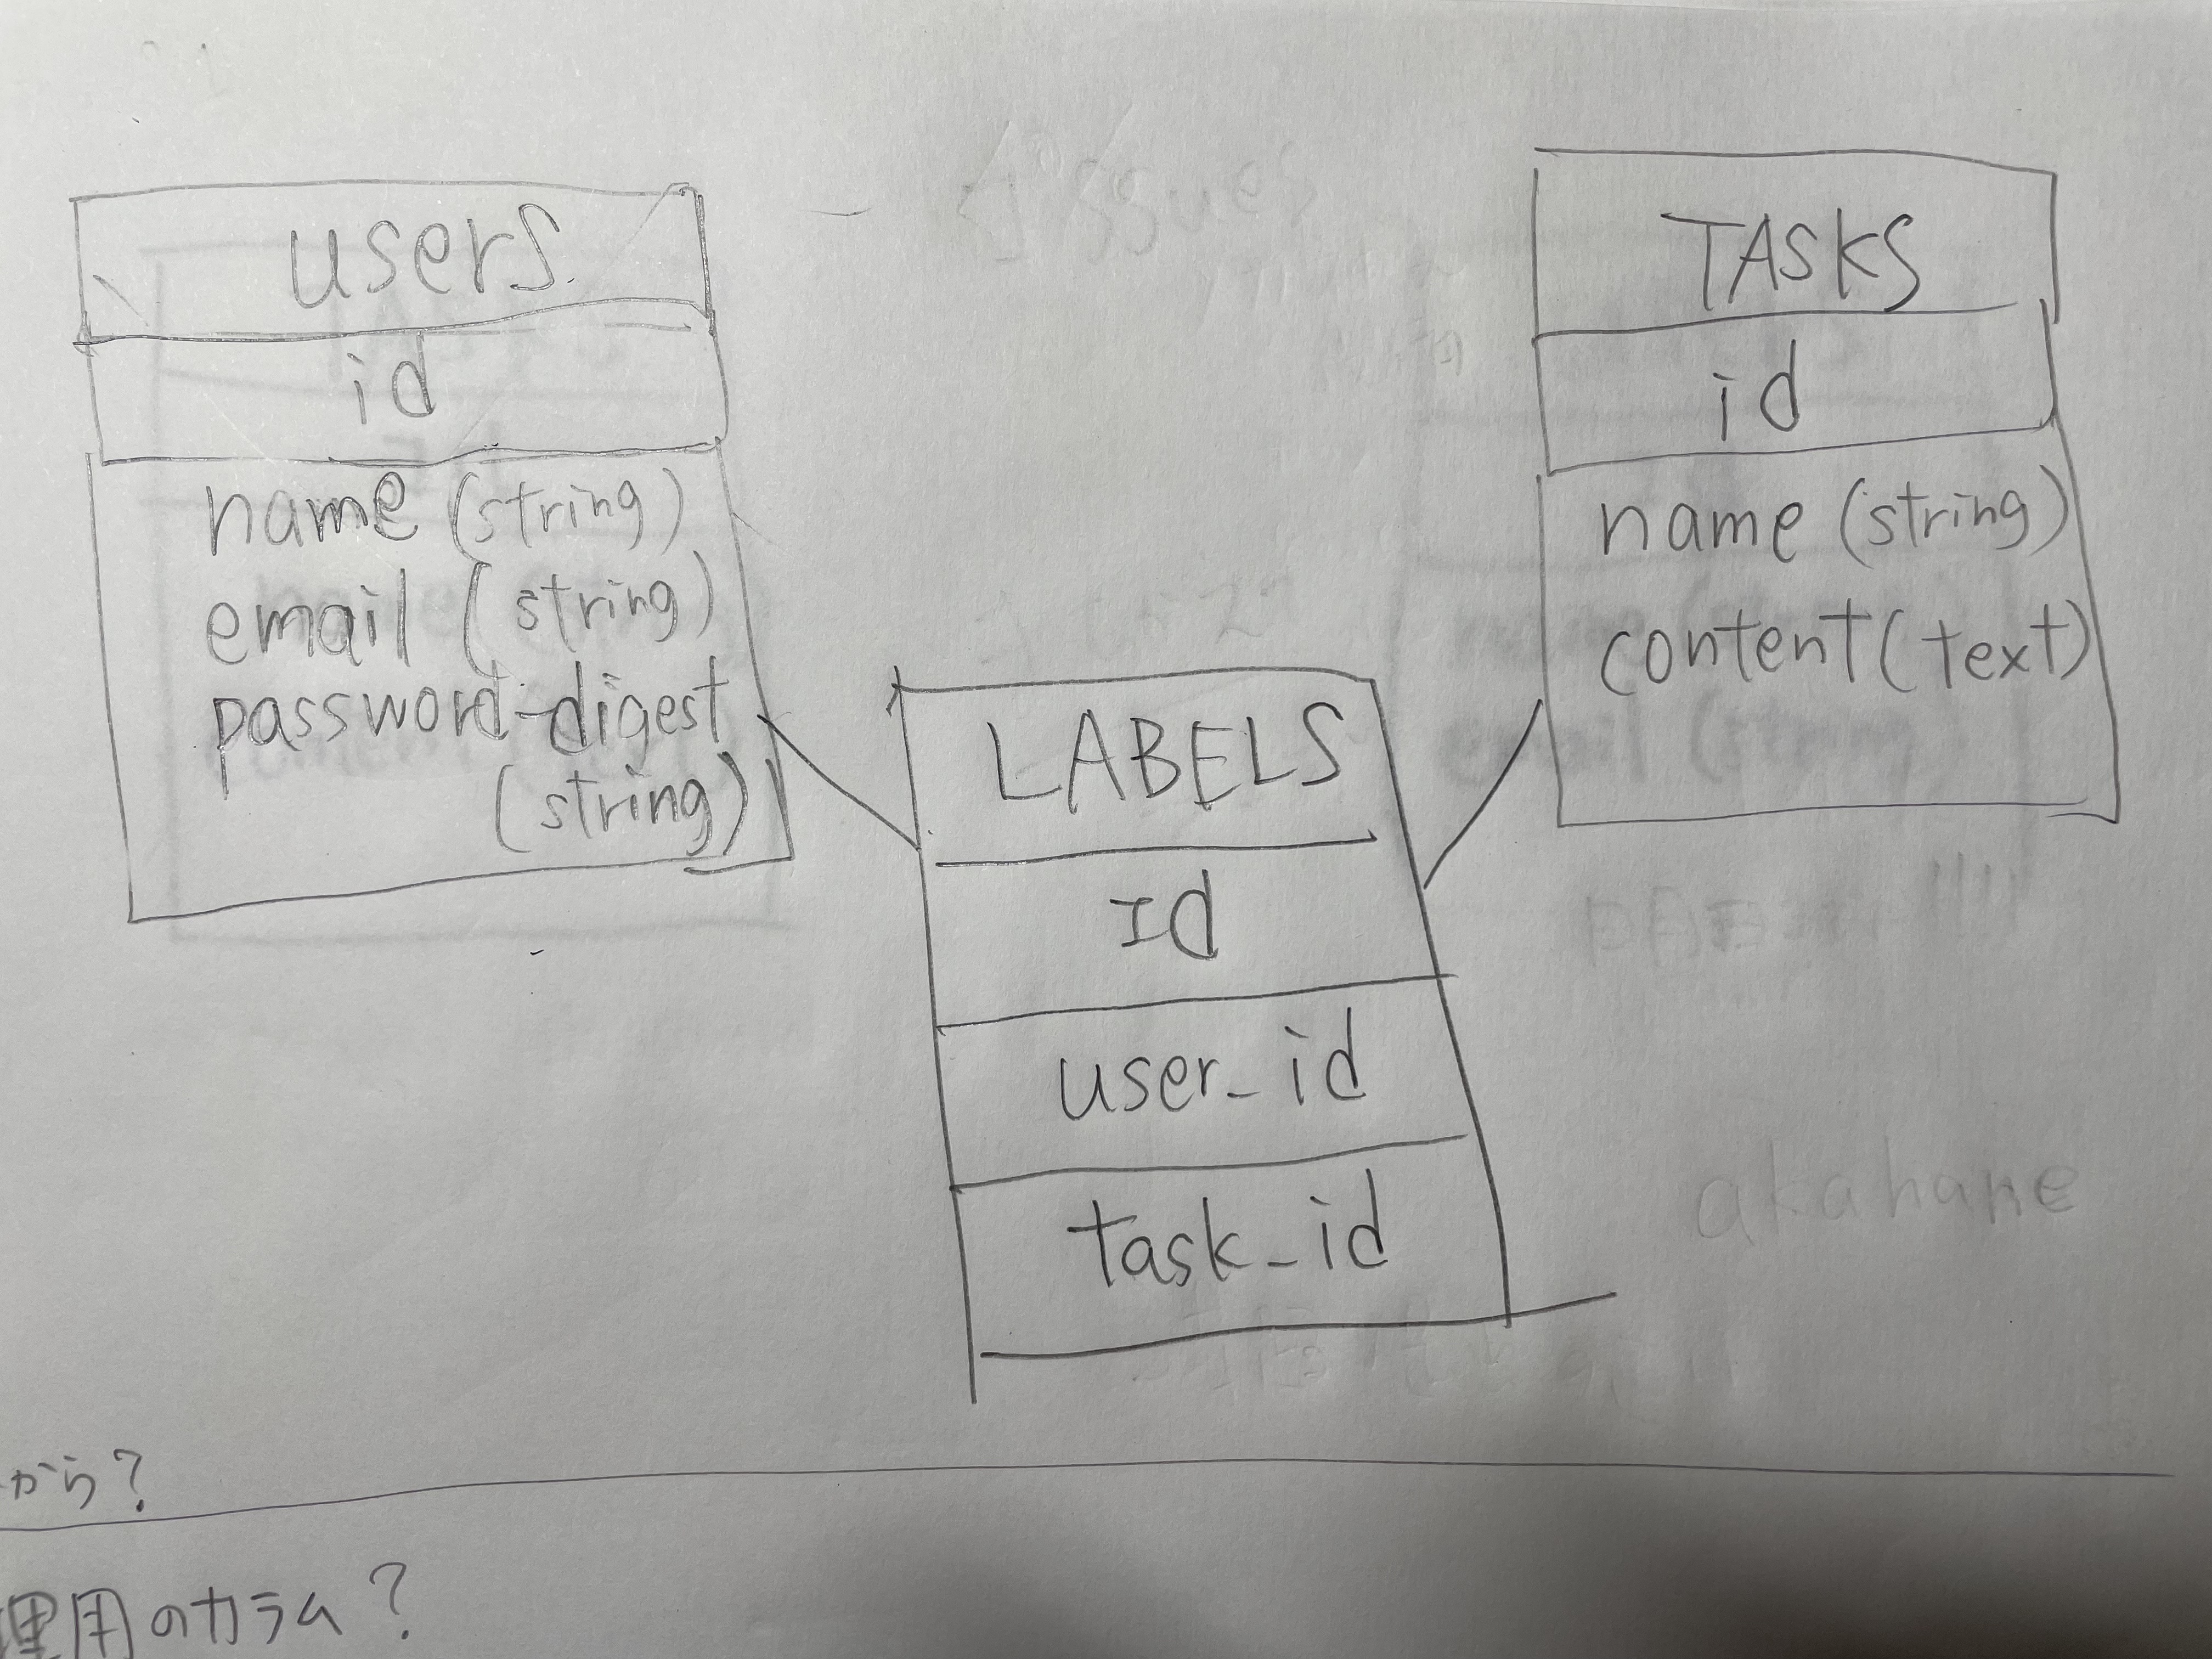 users
id
name (string)
email (string)
password-digest
(string)
TASKS
id
name (string)
content (text)
LABELS
Id
user_id
task_id
akahane
から?
理用のカラム?